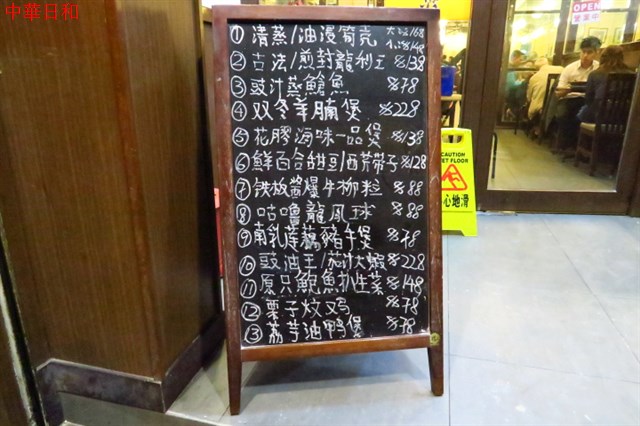 中華日和
① 清蒸/油浸筍壳 大$168
小$148
② 古法/煎封龍利 $138
③ 豉汁蒸鯧魚 $78
④ 双冬羊腩煲 $228
⑤ 花膠海味一品煲 $138
⑥ 鮮百合甜豆/西芹帶子 $128
⑦ 铁板醬爆牛柳粒 $88
⑧ 咕嚕龍鳳球 $88
⑨ 南乳蓮藕豬手煲 $78
⑩ 豉油王/茄汁大蝦 $228
⑪ 原只鮑魚扒生菜 $148
⑫ 栗子炆鸡 $78
⑬ 荔芋油鸭煲 $78
OPEN
營業中
CAUTION
WET FLOOR
小心地滑